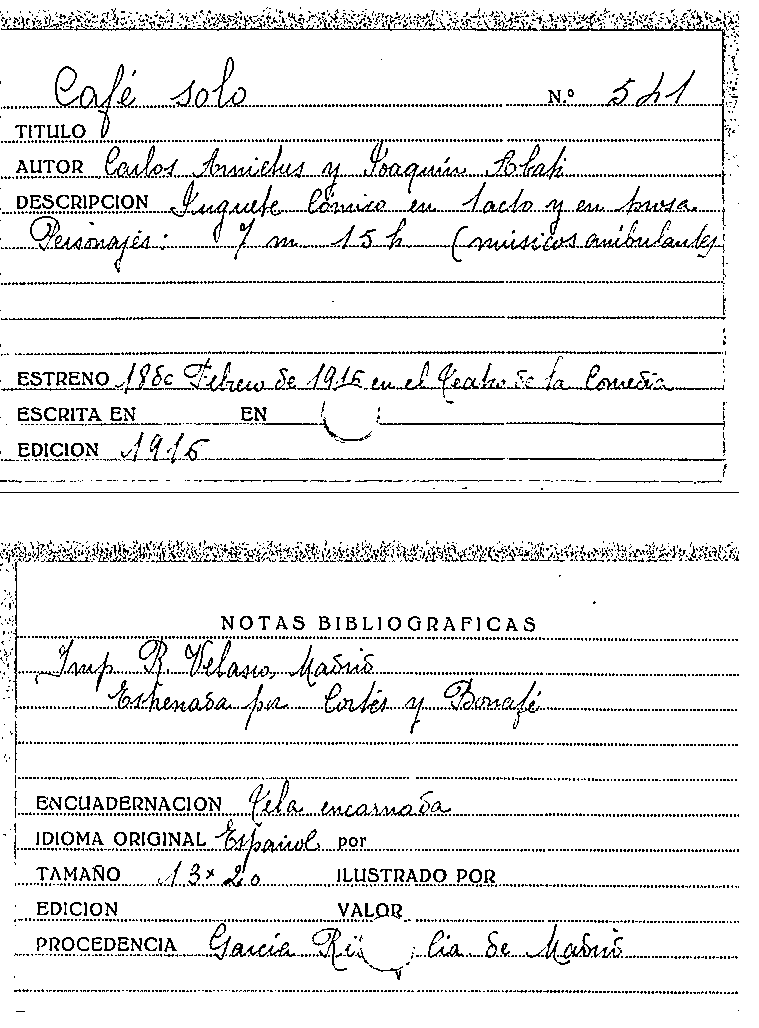 Café solo N.º 541
TITULO
AUTOR Carlos Arniches y Joaquín Abati
DESCRIPCION Juguete cómico en 1 acto y en prosa.
Personajes: 7 m 15 h (músicos ambulantes
ESTRENO 18 de Febrero de 1916 en el Teatro de la Comedia
ESCRITA EN EN
EDICION 1916
NOTAS BIBLIOGRAFICAS
Imp R. Velasco, Madrid
Estrenada por Cortés y Bonafé
ENCUADERNACION Tela encarnada
IDIOMA ORIGINAL Español por
TAMAÑO 13 x 20 ILUSTRADO POR
EDICION VALOR
PROCEDENCIA García de Madrid